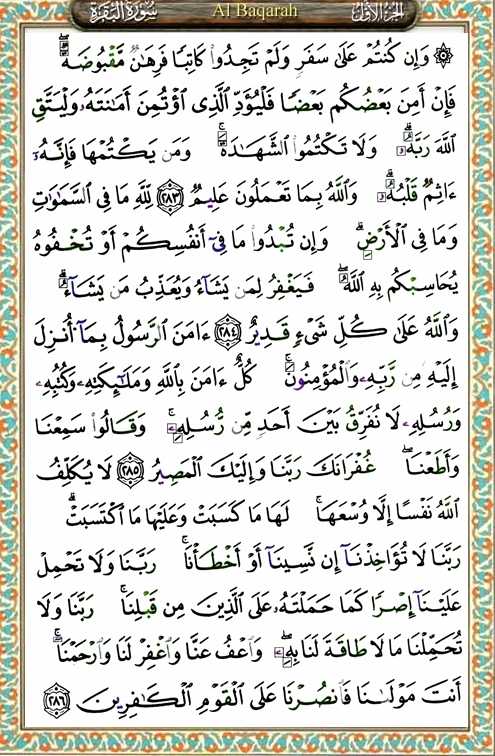 الجزء الأول Al Baqarah سورة البقرة
۞ وَإِن كُنتُمْ عَلَىٰ سَفَرٍ وَلَمْ تَجِدُوا۟ كَاتِبًا فَرِهَـٰنٌ مَّقْبُوضَةٌ ۖ
فَإِنْ أَمِنَ بَعْضُكُم بَعْضًا فَلْيُؤَدِّ ٱلَّذِى ٱؤْتُمِنَ أَمَـٰنَتَهُۥ وَلْيَتَّقِ
ٱللَّهَ رَبَّهُۥ ۗ وَلَا تَكْتُمُوا۟ ٱلشَّهَـٰدَةَ ۚ وَمَن يَكْتُمْهَا فَإِنَّهُۥٓ
ءَاثِمٌ قَلْبُهُۥ ۗ وَٱللَّهُ بِمَا تَعْمَلُونَ عَلِيمٌ ﴿٢٨٣﴾ لِّلَّهِ مَا فِى ٱلسَّمَـٰوَٰتِ
وَمَا فِى ٱلْأَرْضِ ۗ وَإِن تُبْدُوا۟ مَا فِىٓ أَنفُسِكُمْ أَوْ تُخْفُوهُ
يُحَاسِبْكُم بِهِ ٱللَّهُ ۖ فَيَغْفِرُ لِمَن يَشَآءُ وَيُعَذِّبُ مَن يَشَآءُ ۗ
وَٱللَّهُ عَلَىٰ كُلِّ شَىْءٍ قَدِيرٌ ﴿٢٨٤﴾ ءَامَنَ ٱلرَّسُولُ بِمَآ أُنزِلَ
إِلَيْهِ مِن رَّبِّهِۦ وَٱلْمُؤْمِنُونَ ۚ كُلٌّ ءَامَنَ بِٱللَّهِ وَمَلَـٰٓئِكَتِهِۦ وَكُتُبِهِۦ
وَرُسُلِهِۦ لَا نُفَرِّقُ بَيْنَ أَحَدٍ مِّن رُّسُلِهِۦ ۚ وَقَالُوا۟ سَمِعْنَا
وَأَطَعْنَا ۖ غُفْرَانَكَ رَبَّنَا وَإِلَيْكَ ٱلْمَصِيرُ ﴿٢٨٥﴾ لَا يُكَلِّفُ
ٱللَّهُ نَفْسًا إِلَّا وُسْعَهَا ۚ لَهَا مَا كَسَبَتْ وَعَلَيْهَا مَا ٱكْتَسَبَتْ ۗ
رَبَّنَا لَا تُؤَاخِذْنَآ إِن نَّسِينَآ أَوْ أَخْطَأْنَا ۚ رَبَّنَا وَلَا تَحْمِلْ
عَلَيْنَآ إِصْرًا كَمَا حَمَلْتَهُۥ عَلَى ٱلَّذِينَ مِن قَبْلِنَا ۚ رَبَّنَا وَلَا
تُحَمِّلْنَا مَا لَا طَاقَةَ لَنَا بِهِۦ ۖ وَٱعْفُ عَنَّا وَٱغْفِرْ لَنَا وَٱرْحَمْنَآ ۚ
أَنتَ مَوْلَىٰنَا فَٱنصُرْنَا عَلَى ٱلْقَوْمِ ٱلْكَـٰفِرِينَ ﴿٢٨٦﴾